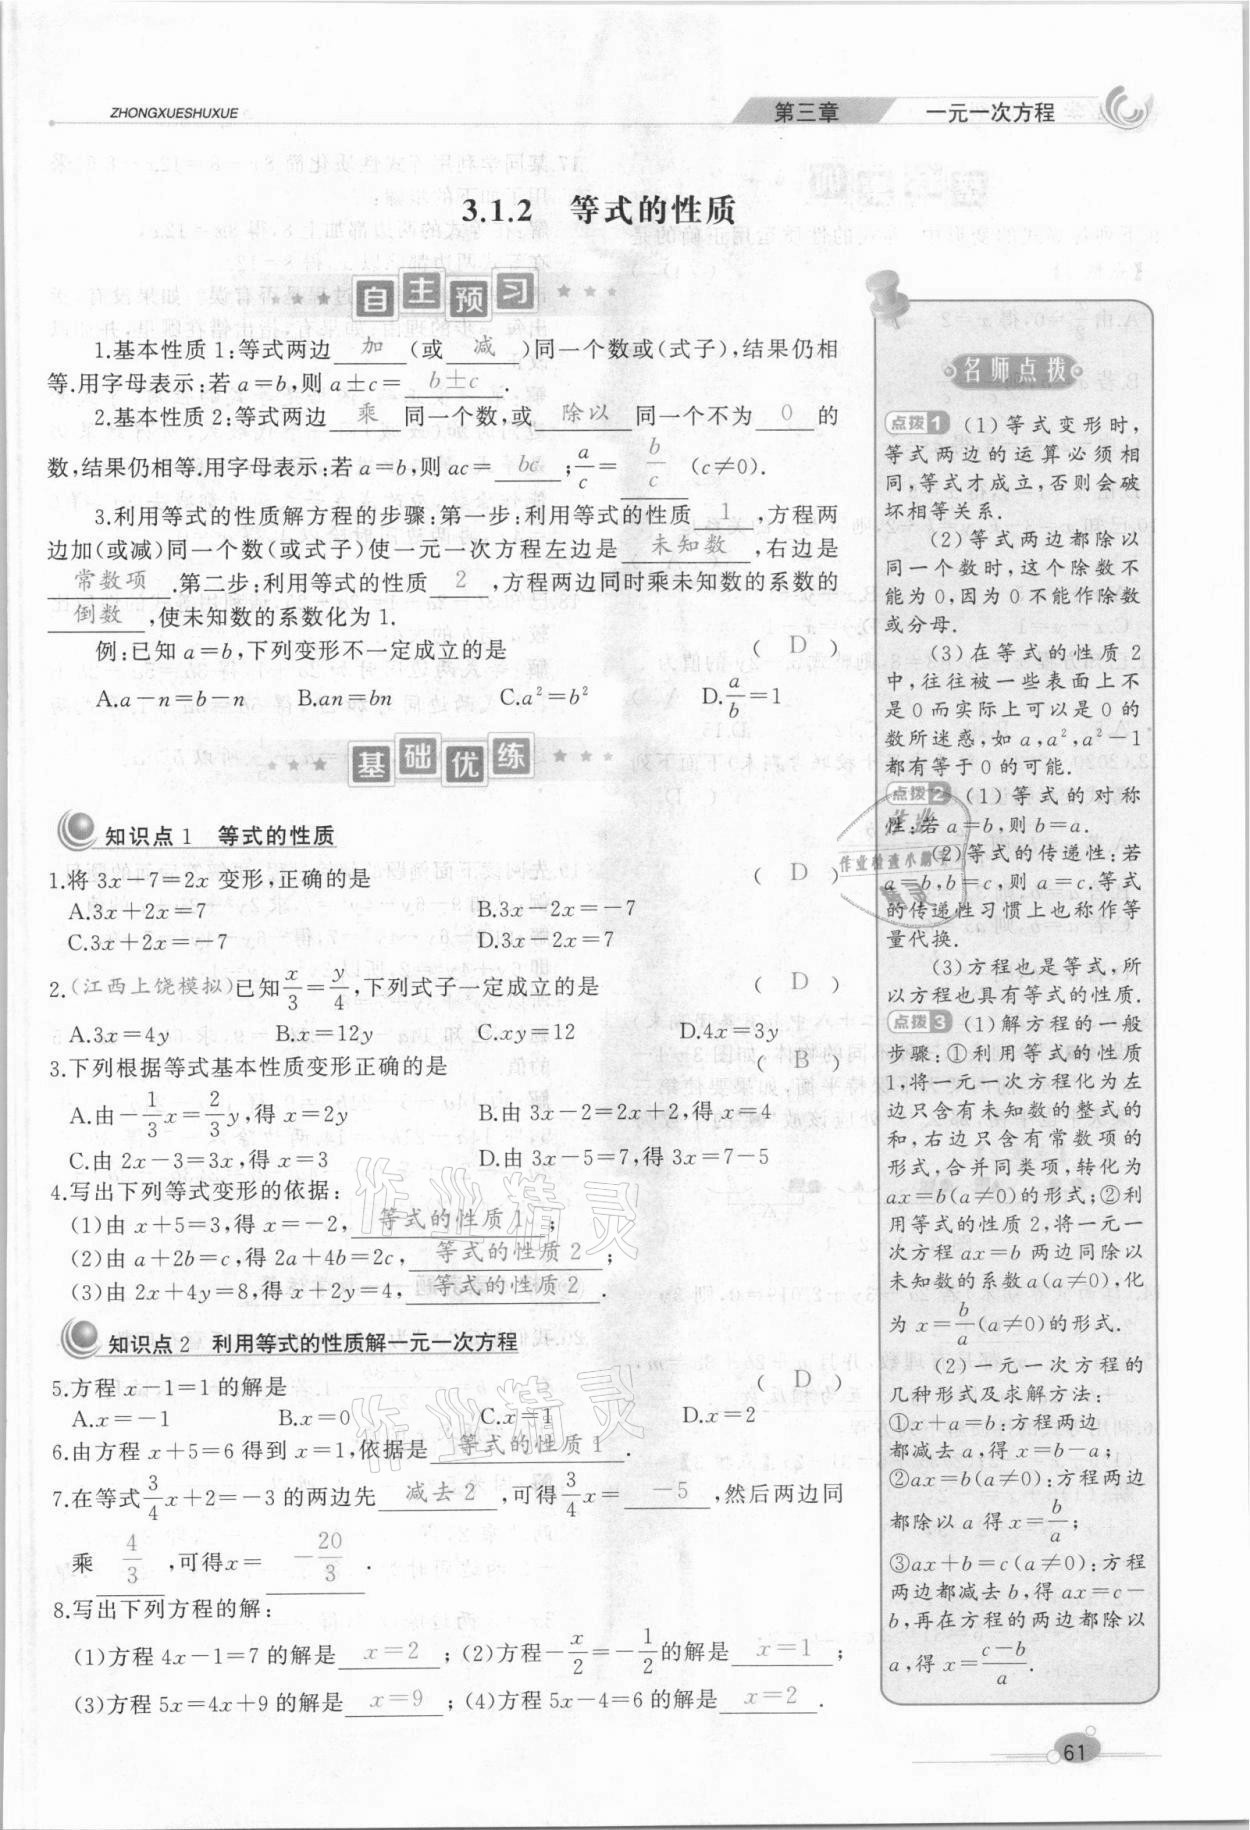 ZHONGXUESHUXUE
第三章 一元一次方程
3.1.2 等式的性质
自主预习
1.基本性质1:等式两边 加 (或 减 )同一个数或(式子),结果仍相
等.用字母表示:若a=b,则a±c= b±c .
2.基本性质2:等式两边 乘 同一个数,或 除以 同一个不为 0 的
数,结果仍相等.用字母表示:若a=b,则ac= bc ;a/c= b/c (c≠0).
3.利用等式的性质解方程的步骤:第一步:利用等式的性质 1 ,方程两
边加(或减)同一个数(或式子)使一元一次方程左边是 未知数 ,右边是
常数项 .第二步:利用等式的性质 2 ,方程两边同时乘未知数的系数的
倒数 ,使未知数的系数化为1.
例:已知a=b,下列变形不一定成立的是 ( D )
A.a-n=b-n B.an=bn C.a²=b² D.a/b=1
基础优练
知识点1 等式的性质
1.将3x-7=2x变形,正确的是 ( D )
A.3x+2x=7 B.3x-2x=-7
C.3x+2x=-7 D.3x-2x=7
2.(江西上饶模拟)已知x/3=y/4,下列式子一定成立的是 ( D )
A.3x=4y B.x=12y C.xy=12 D.4x=3y
3.下列根据等式基本性质变形正确的是 ( B )
A.由-1/3x=2/3y,得x=2y B.由3x-2=2x+2,得x=4
C.由2x-3=3x,得x=3 D.由3x-5=7,得3x=7-5
4.写出下列等式变形的依据:
(1)由x+5=3,得x=-2, 等式的性质1 ;
(2)由a+2b=c,得2a+4b=2c, 等式的性质2 ;
(3)由2x+4y=8,得x+2y=4, 等式的性质2 .
知识点2 利用等式的性质解一元一次方程
5.方程x-1=1的解是 ( D )
A.x=-1 B.x=0 C.x=1 D.x=2
6.由方程x+5=6得到x=1,依据是 等式的性质1 .
7.在等式3/4x+2=-3的两边先 减去2 ,可得3/4x= -5 ,然后两边同
乘 4/3 ,可得x= -20/3 .
8.写出下列方程的解:
(1)方程4x-1=7的解是 x=2 ;(2)方程-x/2=-1/2的解是 x=1 ;
(3)方程5x=4x+9的解是 x=9 ;(4)方程5x-4=6的解是 x=2 .
名师点拨
点拨1 (1)等式变形时,
等式两边的运算必须相
同,等式才成立,否则会破
坏相等关系.
(2)等式两边都除以
同一个数时,这个除数不
能为0,因为0不能作除数
或分母.
(3)在等式的性质2
中,往往被一些表面上不
是0而实际上可以是0的
数所迷惑,如a,a²,a²-1
都有等于0的可能.
点拨2 (1)等式的对称
性:若a=b,则b=a.
(2)等式的传递性:若
a=b,b=c,则a=c.等式
的传递性习惯上也称作等
量代换.
(3)方程也是等式,所
以方程也具有等式的性质.
点拨3 (1)解方程的一般
步骤:①利用等式的性质
1,将一元一次方程化为左
边只含有未知数的整式的
和,右边只含有常数项的
形式,合并同类项,转化为
ax=b(a≠0)的形式;②利
用等式的性质2,将一元一
次方程ax=b两边同除以
未知数的系数a(a≠0),化
为x=b/a(a≠0)的形式.
(2)一元一次方程的
几种形式及求解方法:
①x+a=b:方程两边
都减去a,得x=b-a;
②ax=b(a≠0):方程两边
都除以a得x=b/a;
③ax+b=c(a≠0):方程
两边都减去b,得ax=c-
b,再在方程的两边都除以
a,得x=(c-b)/a.
作业精灵
作业精灵
作业检查小帮手
61